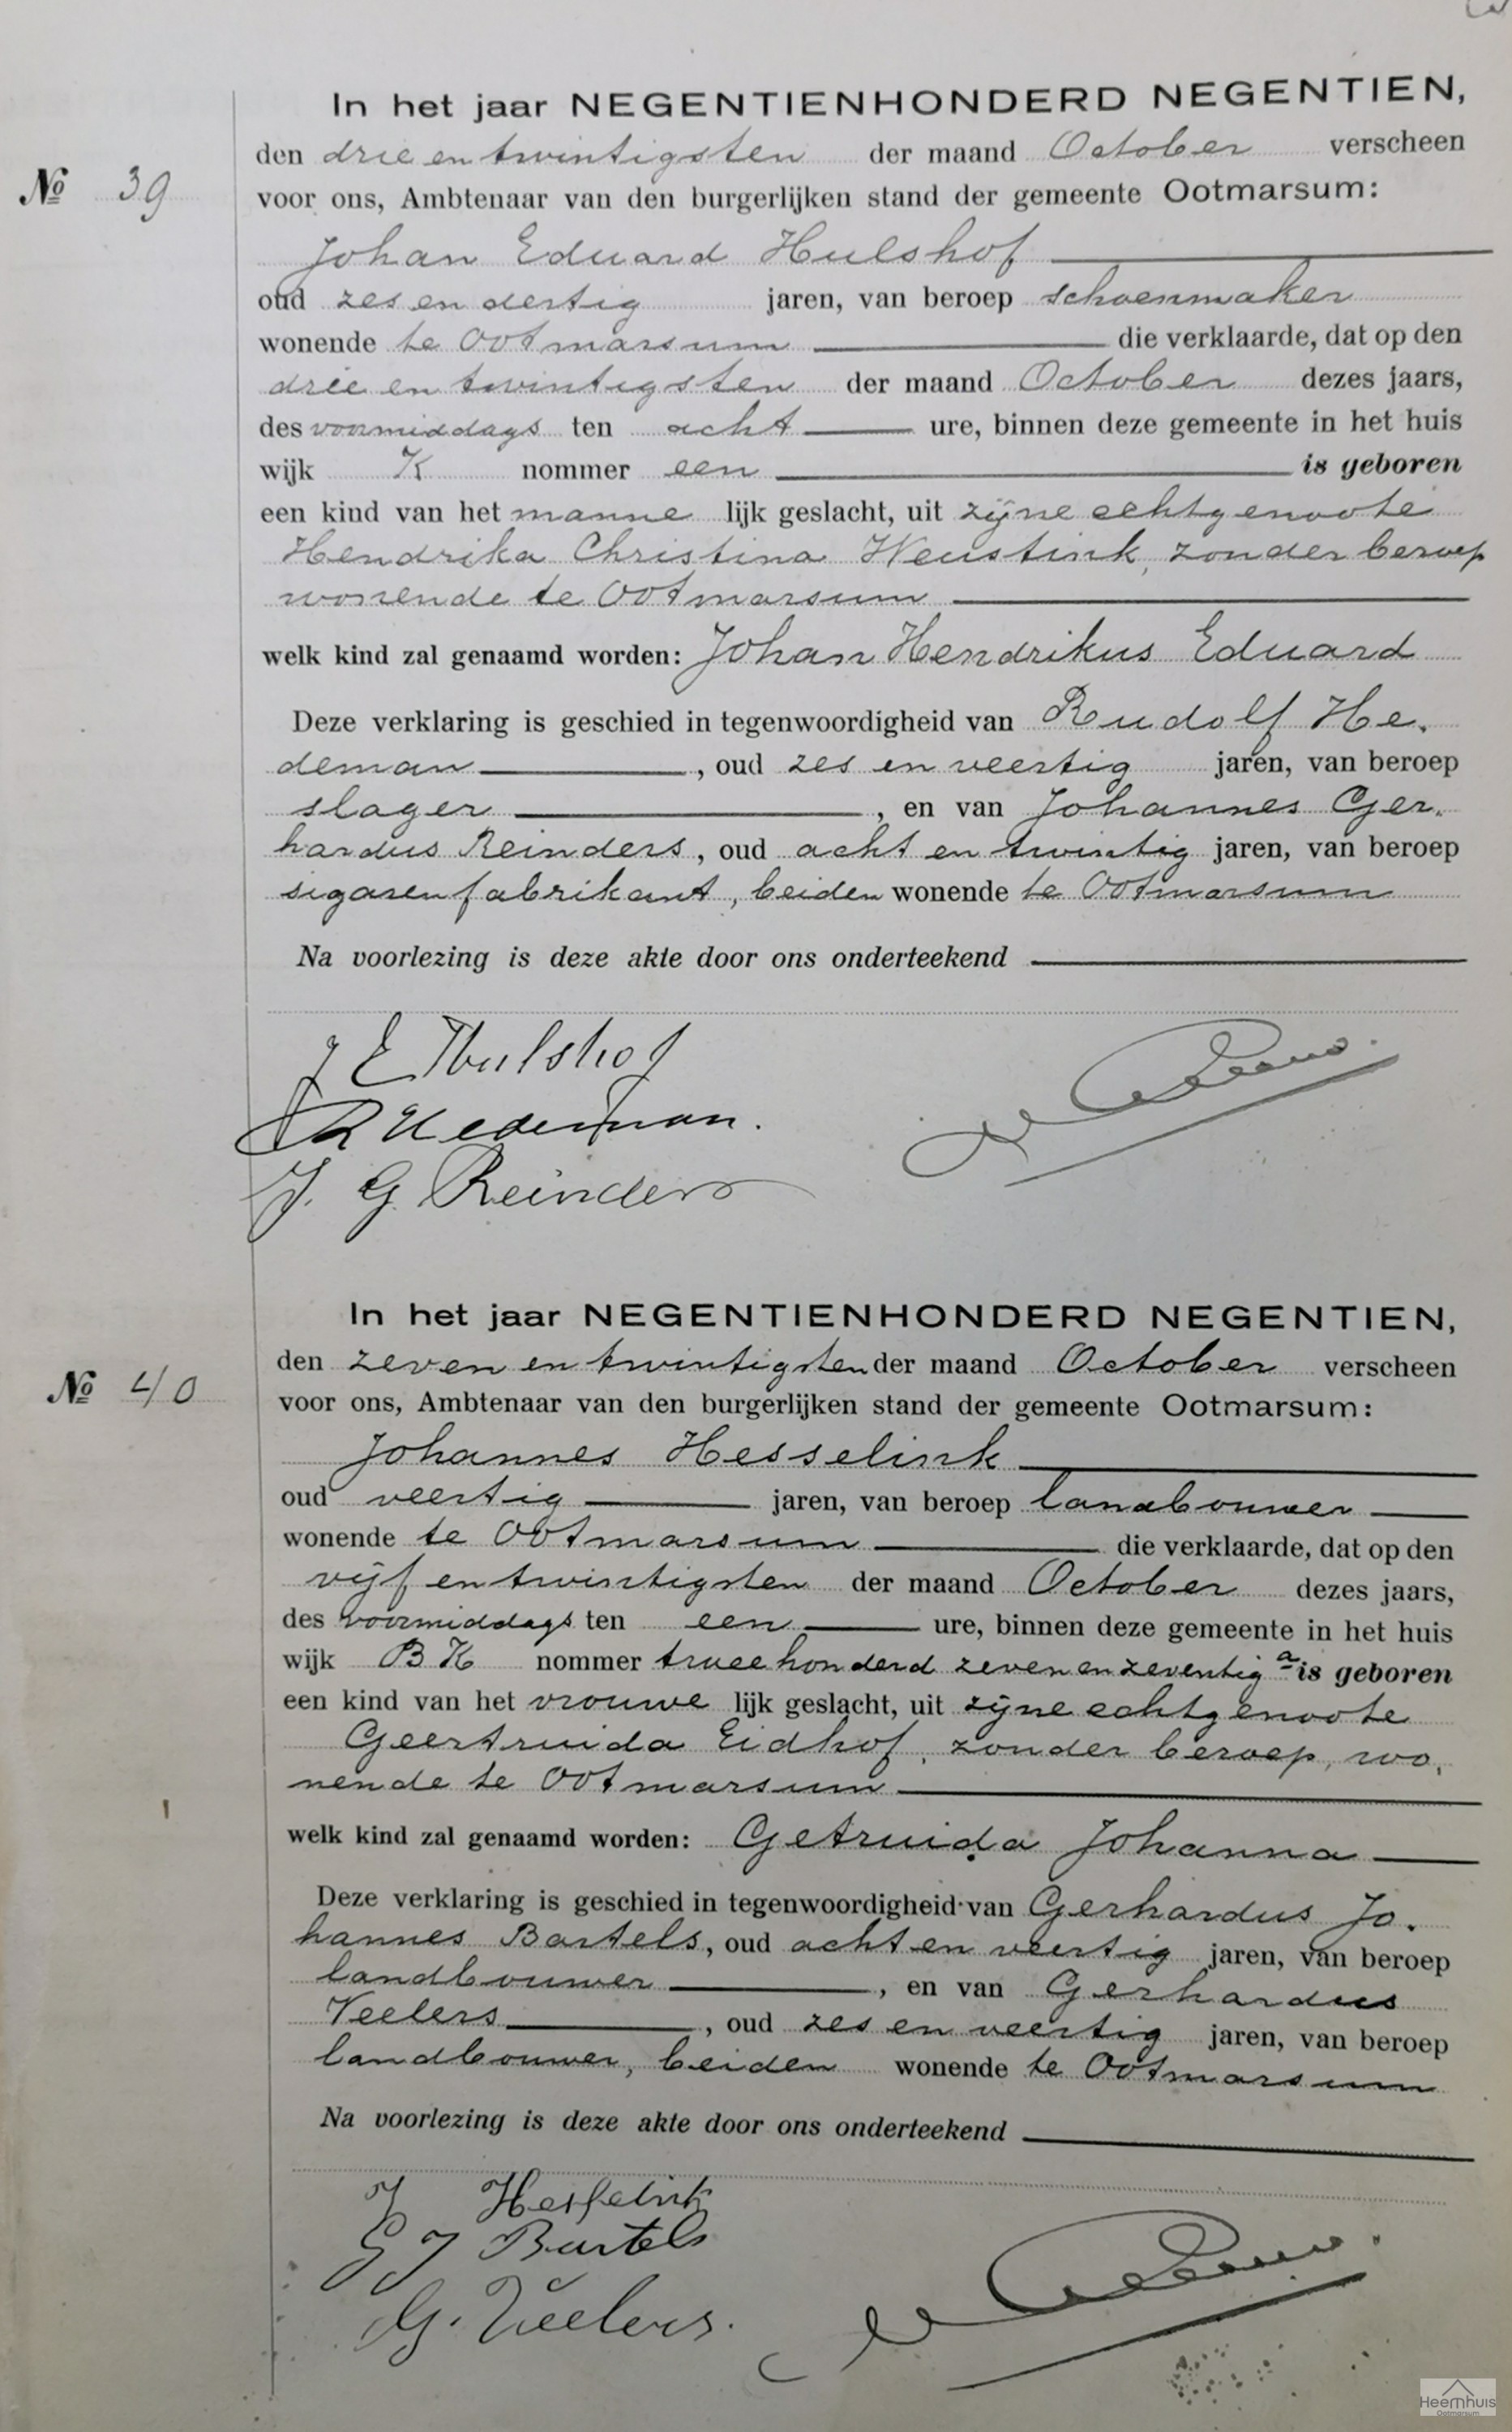 In het jaar NEGENTIENHONDERD NEGENTIEN,
den drie en twintigsten der maand October verscheen
№ 39
voor ons, Ambtenaar van den burgerlijken stand der gemeente Ootmarsum:
Johan Eduard Hulshof
oud zes en dertig jaren, van beroep schoenmaker
wonende te Ootmarsum die verklaarde, dat op den
drie en twintigsten der maand October dezes jaars,
des voormiddags ten acht ure, binnen deze gemeente in het huis
wijk K nommer een is geboren
een kind van het manne lijk geslacht, uit zijne echtgenoote
Hendrika Christina Weustink, zonder beroep
wonende te Ootmarsum
welk kind zal genaamd worden: Johan Hendrikus Eduard
Deze verklaring is geschied in tegenwoordigheid van Rudolf He-
deman, oud zes en veertig jaren, van beroep
slager, en van Johannes Ger-
hardus Reinders, oud acht en twintig jaren, van beroep
sigarenfabrikant, beiden wonende te Ootmarsum
Na voorlezing is deze akte door ons onderteekend
J E Hulshof
R Hedeman.
J. G. Reinders
In het jaar NEGENTIENHONDERD NEGENTIEN,
den zeven en twintigsten der maand October verscheen
№ 40
voor ons, Ambtenaar van den burgerlijken stand der gemeente Ootmarsum:
Johannes Hesselink
oud veertig jaren, van beroep landbouwer
wonende te Ootmarsum die verklaarde, dat op den
vijf en twintigsten der maand October dezes jaars,
des voormiddags ten een ure, binnen deze gemeente in het huis
wijk B K nommer twee honderd zeven en zeventig a is geboren
een kind van het vrouwe lijk geslacht, uit zijne echtgenoote
Geertruida Eidhof, zonder beroep, wo-
nende te Ootmarsum
welk kind zal genaamd worden: Getruida Johanna
Deze verklaring is geschied in tegenwoordigheid van Gerhardus Jo-
hannes Bartels, oud acht en veertig jaren, van beroep
landbouwer, en van Gerhardus
Veelers, oud zes en veertig jaren, van beroep
landbouwer, beiden wonende te Ootmarsum
Na voorlezing is deze akte door ons onderteekend
J Hesselink
G J Bartels
G. Veelers.
Heemhuis
Ootmarsum